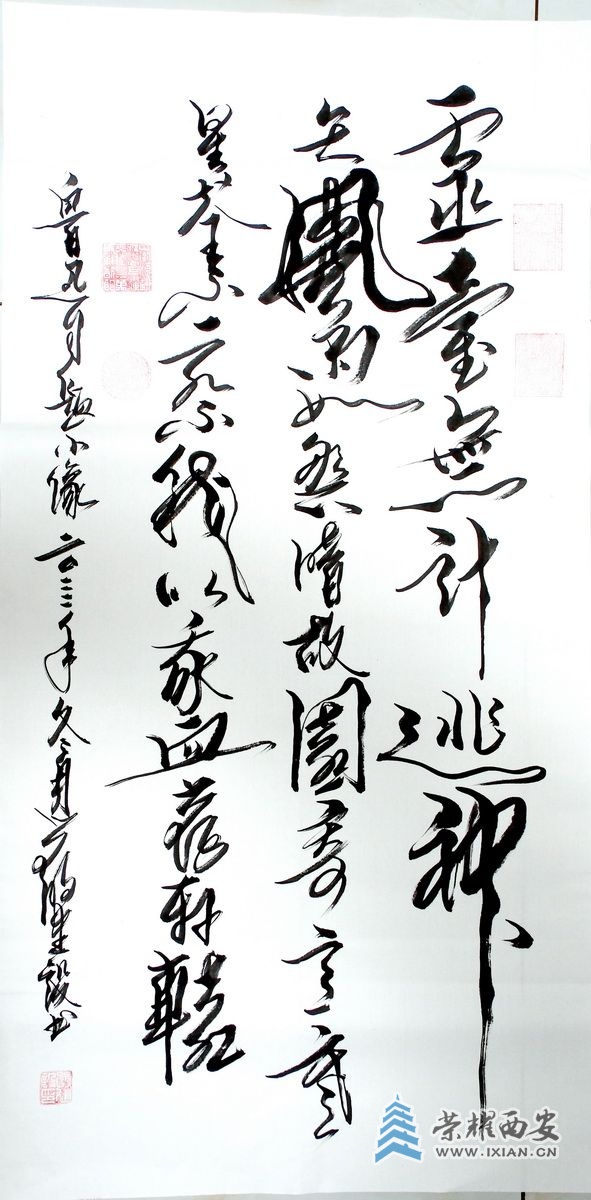 靈臺無計逃神
矢風雨如磐暗故園寄意寒
星荃不察我以我血薦軒轅
魯迅自題小像 二〇一三年冬月
荣耀西安
WWW.IXIAN.CN